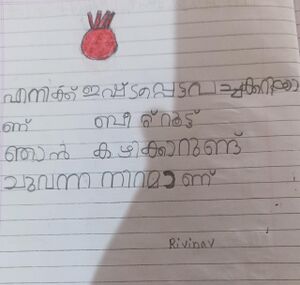 എനിക്ക് ഇഷ്ടപ്പെട്ട പച്ചക്കറിയാ
ണ് ബീറ്റ്റൂട്ട്
ഞാൻ കഴിക്കാറുണ്ട്
ചുവന്ന നിറമാണ്
Rivinav